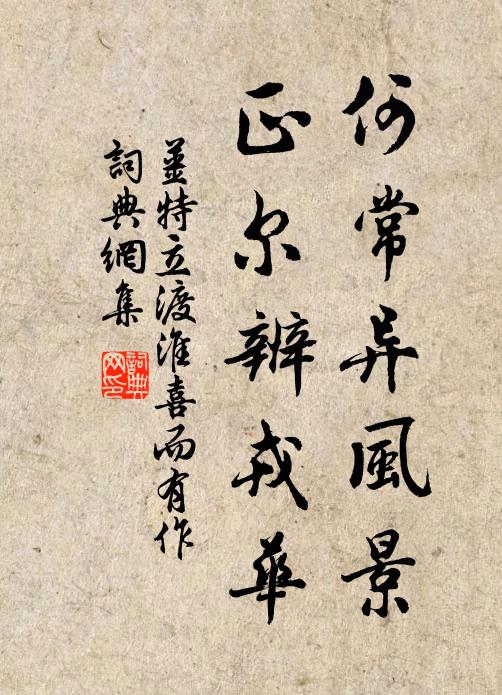 何常异風景
正尔辨戎華
姜特立渡淮喜而有作
詞典網集
詞典
网印